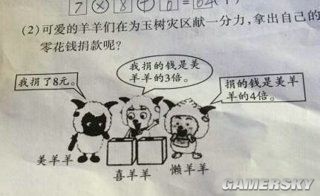 (2)可爱的羊羊们在为玉树灾区献一分力,拿出自己的
零花钱捐款呢?
我捐了8元。
我捐的钱是美
羊羊的3倍。
捐的钱是美羊
羊的4倍。
美羊羊
喜羊羊
懒羊羊
GAMERSKY